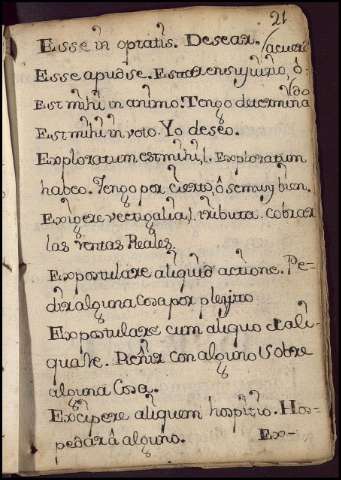 21
Esse in optatis. Desear.
Esse apud se. Estar en su juizio, ô
acuerdo
Est mihi in animo. Tengo determina
Est mihi in voto. Yo deseo.
Exploratum est mihi, l. Exploratum
habeo. Tengo por cierto, ô se muy bien.
Exigere vectigalia, l. tributa. Cobrar
las rentas Reales.
Expostulare aliquid actione. Pe-
dir alguna cosa por pleyto
Expostulare cum aliquo de ali-
qua re. Reñir con alguno sobre
alguna Cosa.
Excipere aliquem hospitio. Hos-
pedar à alguno.
Ex-